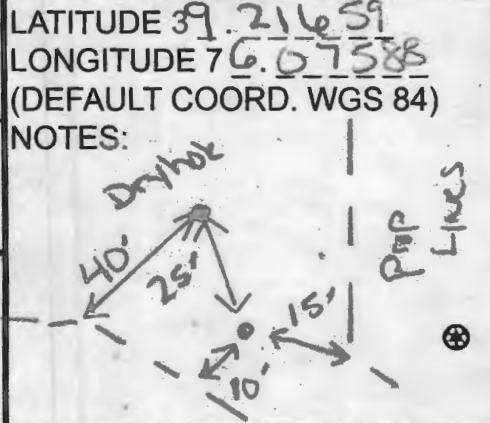 LATITUDE 39.21659
LONGITUDE 76.07588
(DEFAULT COORD. WGS 84)
NOTES:
Dryhole
40'
25'
15'
10'
Prop
Lines